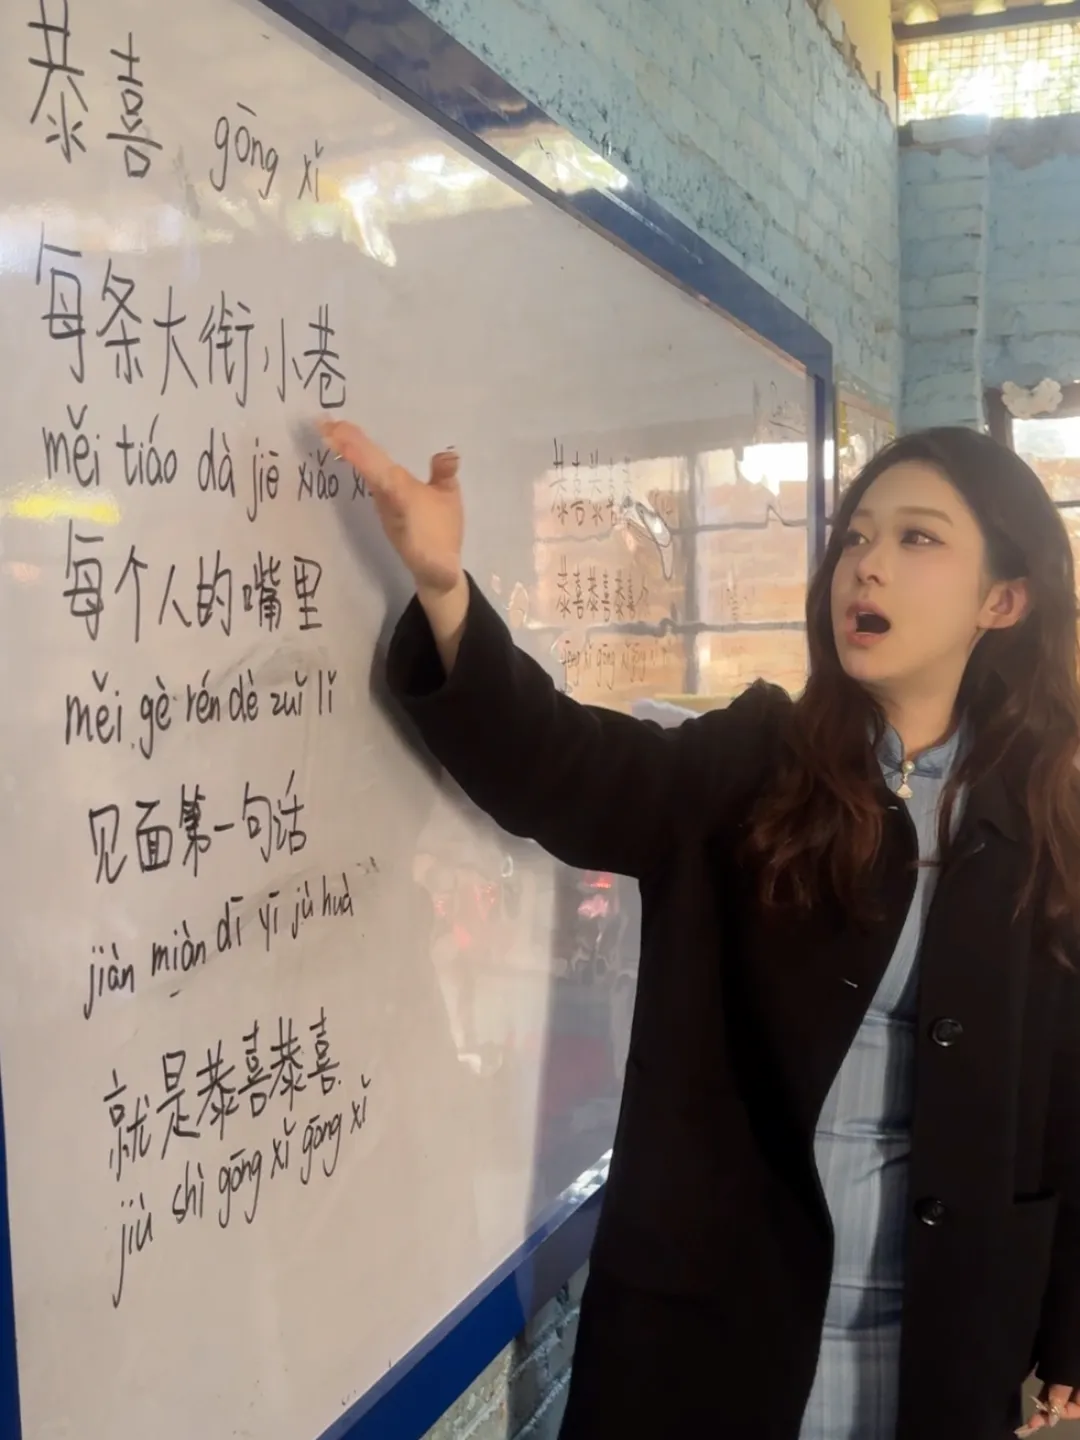 恭喜 gōng xǐ
每条大衔小巷
měi tiáo dà jiē xiǎo
每个人的嘴里
měi gè rén dè zuǐ lǐ
见面第一句话
jiàn miàn dī yī jù huà
就是恭喜恭喜
jiù shì gōng xǐ gōng xǐ
恭喜恭喜恭喜